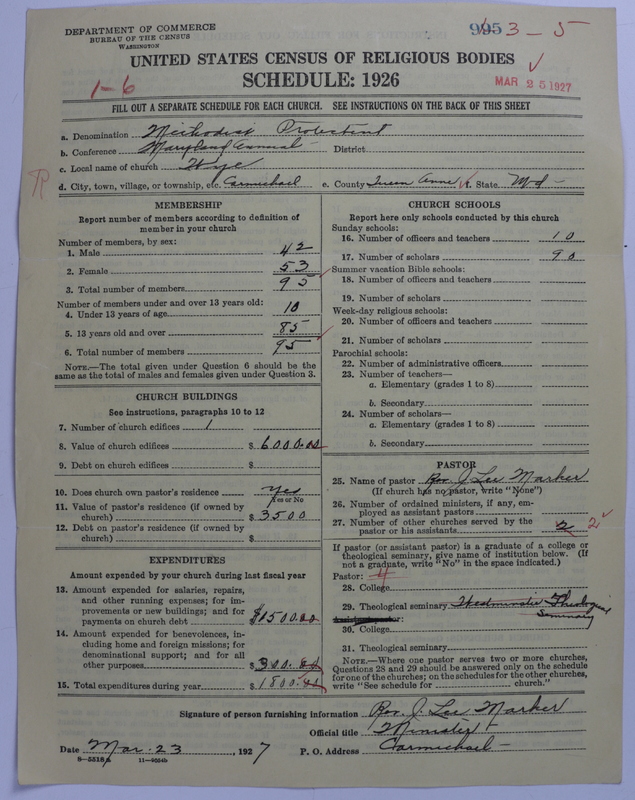 DEPARTMENT OF COMMERCE
BUREAU OF THE CENSUS
WASHINGTON
3 - 5
UNITED STATES CENSUS OF RELIGIOUS BODIES
SCHEDULE: 1926
1-6
MAR 25 1927
FILL OUT A SEPARATE SCHEDULE FOR EACH CHURCH. SEE INSTRUCTIONS ON THE BACK OF THIS SHEET
a. Denomination Methodist Protestant
b. Conference Maryland Annual - District
c. Local name of church Wye
d. City, town, village, or township, etc. Carmichael e. County Queen Anne f. State Md -
MEMBERSHIP
Report number of members according to definition of
member in your church
Number of members, by sex:
1. Male 42
2. Female 53
3. Total number of members 95
Number of members under and over 13 years old:
4. Under 13 years of age 10
5. 13 years old and over 85
6. Total number of members 95
NOTE.—The total given under Question 6 should be
same as the total of males and females given under Question 3.
CHURCH BUILDINGS
See instructions, paragraphs 10 to 12
7. Number of church edifices 1
8. Value of church edifices $ 6000.00
9. Debt on church edifices $
10. Does church own pastor's residence Yes
Yes or No
11. Value of pastor's residence (if owned by
church) $ 3500
12. Debt on pastor's residence (if owned by
church) $
EXPENDITURES
Amount expended by your church during last fiscal year
13. Amount expended for salaries, repairs,
and other running expenses; for im-
provements or new buildings; and for
payments on church debt $1500.00
14. Amount expended for benevolences, in-
cluding home and foreign missions; for
denominational support; and for all
other purposes $300.00
15. Total expenditures during year $1800.00
CHURCH SCHOOLS
Report here only schools conducted by this church
Sunday schools:
16. Number of officers and teachers 10
17. Number of scholars 90
Summer vacation Bible schools:
18. Number of officers and teachers
19. Number of scholars
Week-day religious schools:
20. Number of officers and teachers
21. Number of scholars
Parochial schools:
22. Number of administrative officers
23. Number of teachers—
a. Elementary (grades 1 to 8)
b. Secondary
24. Number of scholars—
a. Elementary (grades 1 to 8)
b. Secondary
PASTOR
25. Name of pastor Rev. J. Lee Marker
(If church has no pastor, write "None")
26. Number of ordained ministers, if any, em-
ployed as assistant pastors
27. Number of other churches served by the
pastor or his assistants 2 2
If pastor (or assistant pastor) is a graduate of a college or
theological seminary, give name of institution below. (If
not a graduate, write "No" in the space indicated.)
Pastor: 4
28. College
29. Theological seminary Westminster Theological
Seminary
Assistant pastor:
30. College
31. Theological seminary
NOTE.—Where one pastor serves two or more churches,
Questions 28 and 29 should be answered only on the schedule
for one of the churches; on the schedules for the other churches,
write "See schedule for church."
Signature of person furnishing information Rev. J. Lee Marker
Official title Minister
Date Mar. 23, 1927 P. O. Address Carmichael -